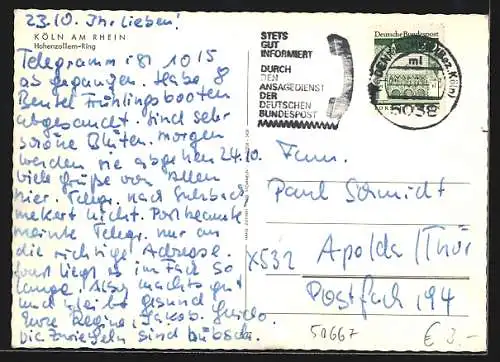 23.10. Ihr Lieben!
KÖLN AM RHEIN
Hohenzollern-Ring
Telegramm ist 1015
abgegangen. Habe 8
Beutel Frühlingsboten
abgesandt. Sind sehr
schöne Blüten. Morgen
werden sie abgehen 24.10.
Viele Grüße von allen
hier. Telegr. nach Sulzbach
nicht. Postbeamte
meinte Telegr. nur an
die richtige Adresse.
Sonst liegt es im Fach so
lange. Also machts gut
und bleibt gesund
Eure Regina, Jakob. Guido.
Die Zwiebeln sind hübsch.
STETS
GUT
INFORMIERT
DURCH
DEN
ANSAGEDIENST
DER
DEUTSCHEN
BUNDESPOST
Deutsche Bundespost
RODENKIRCHEN (Bez. Köln)
ml
5038
Fam.
Paul Schmidt
X532 Apolda/Thür
Postfach 194
50667
€ 3.-